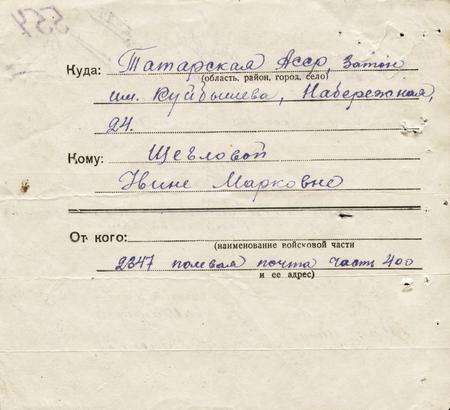 554
Куда: Татарская Асср, Затон
(область, район, город, село)
им. Куйбышева, Набережная,
24.
Кому: Щегловой
Марковне
От кого:
(наименование войсковой части
2347 полевая почта часть 400
и ее адрес)